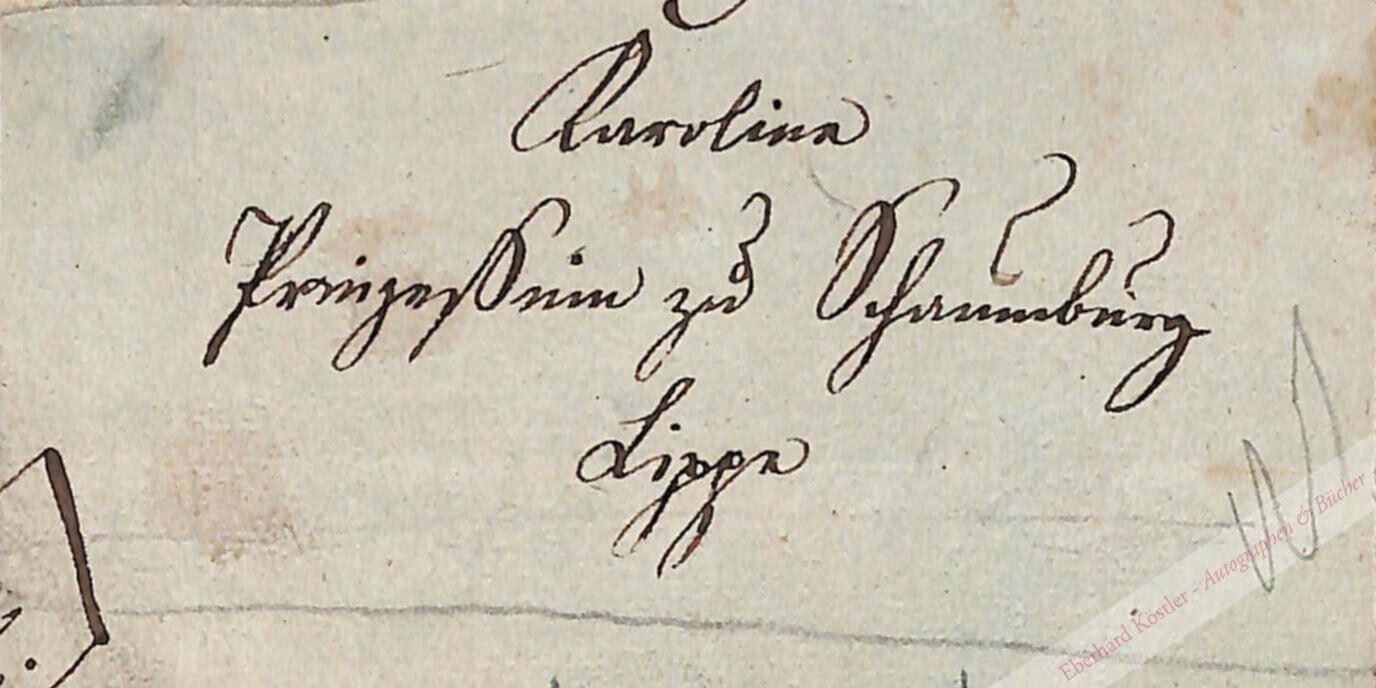 Karoline
Prinzessinn zu Schaumburg
Lippe
Eberhard Köstler - Autographen & Bücher